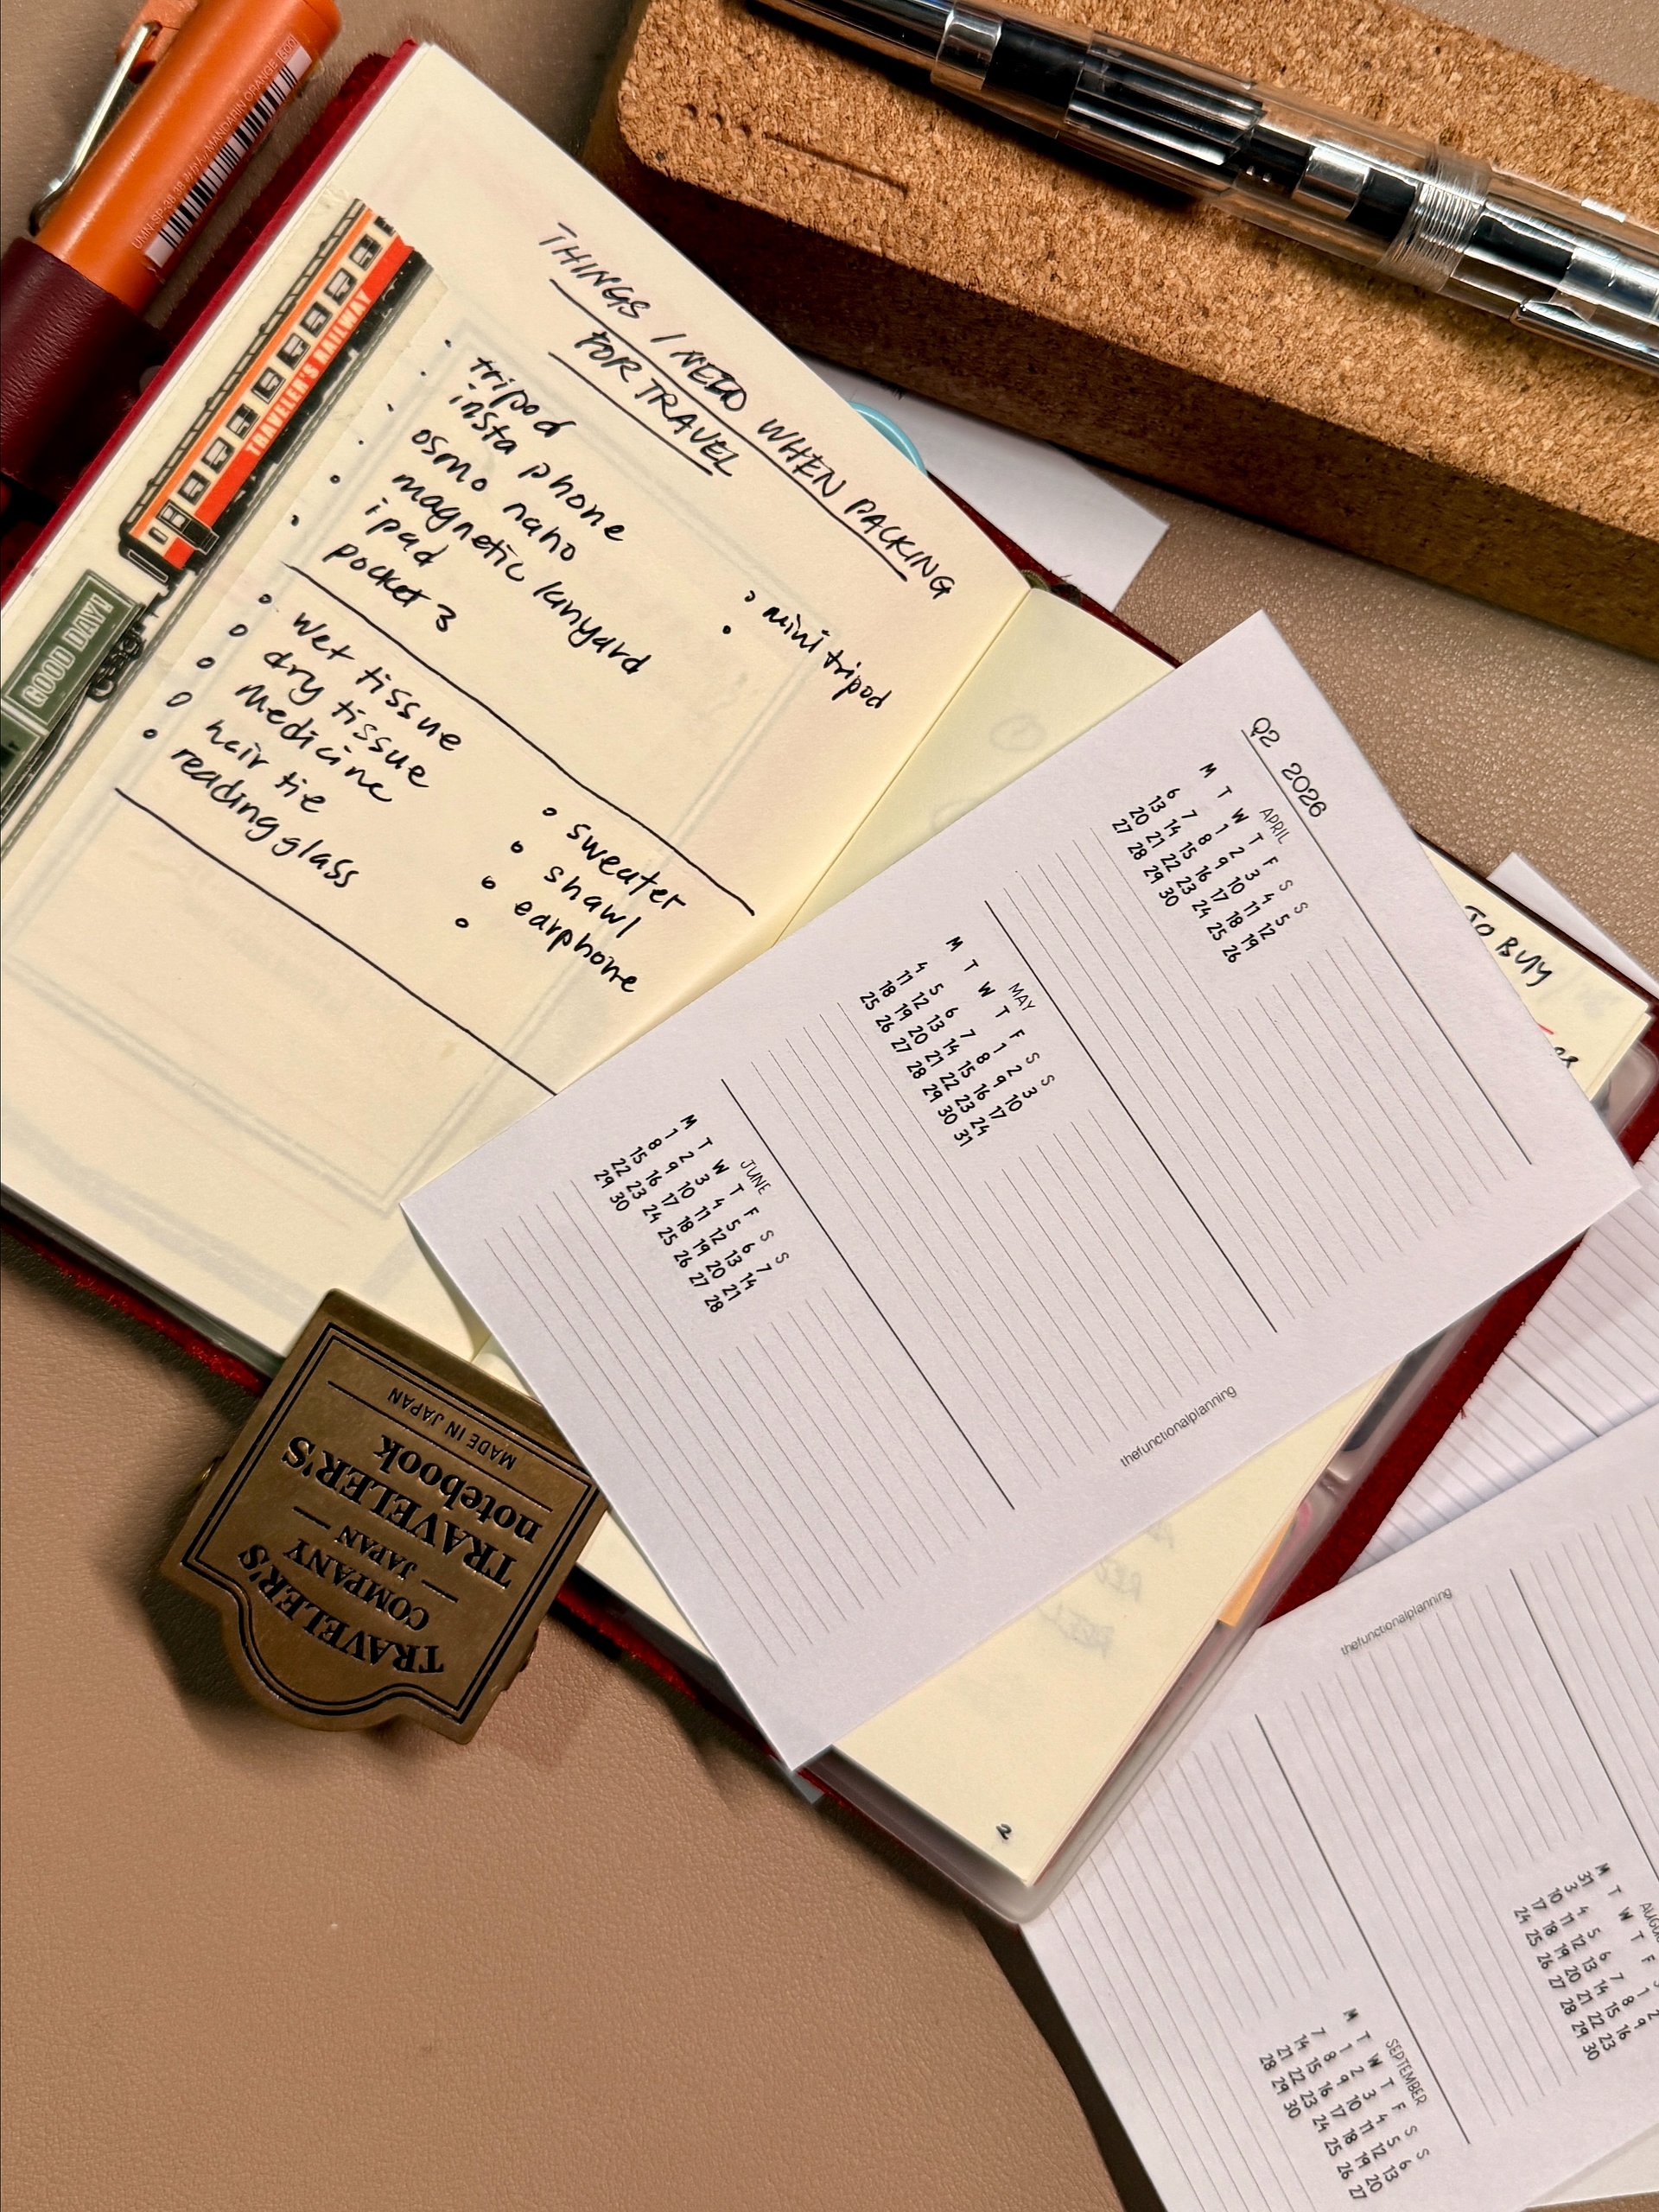 UMN-SP-3A.38 ユニ/MANDARIN ORANGE [500]
TRAVELER'S RAILWAY
GOOD DAY!!
THINGS I NEED WHEN PACKING
FOR TRAVEL
• tripod
• insta phone
• osmo nano
• magnetic lanyard
• ipad
• pocket 3
• mini tripod
•
• wet tissue
• dry tissue
• medicine
• hair tie
• reading glass
• sweater
• shawl
• earphone
•
TRAVELER'S
COMPANY
JAPAN
TRAVELER'S
notebook
MADE IN JAPAN
Q2 2026
APRIL
M T W T F S S
1 2 3 4 5
6 7 8 9 10 11 12
13 14 15 16 17 18 19
20 21 22 23 24 25 26
27 28 29 30
MAY
M T W T F S S
1 2 3
4 5 6 7 8 9 10
11 12 13 14 15 16 17
18 19 20 21 22 23 24
25 26 27 28 29 30 31
JUNE
M T W T F S S
1 2 3 4 5 6 7
8 9 10 11 12 13 14
15 16 17 18 19 20 21
22 23 24 25 26 27 28
29 30
thefunctionalplanning
TO BUY
2
thefunctionalplanning
M T W T F
1
3 4 5 6 7 8 9
10 11 12 13 14 15 16
17 18 19 20 21 22 23
24 25 26 27 28 29 30
31
SEPTEMBER
M T W T F S S
1 2 3 4 5 6
7 8 9 10 11 12 13
14 15 16 17 18 19 20
21 22 23 24 25 26 27
28 29 30